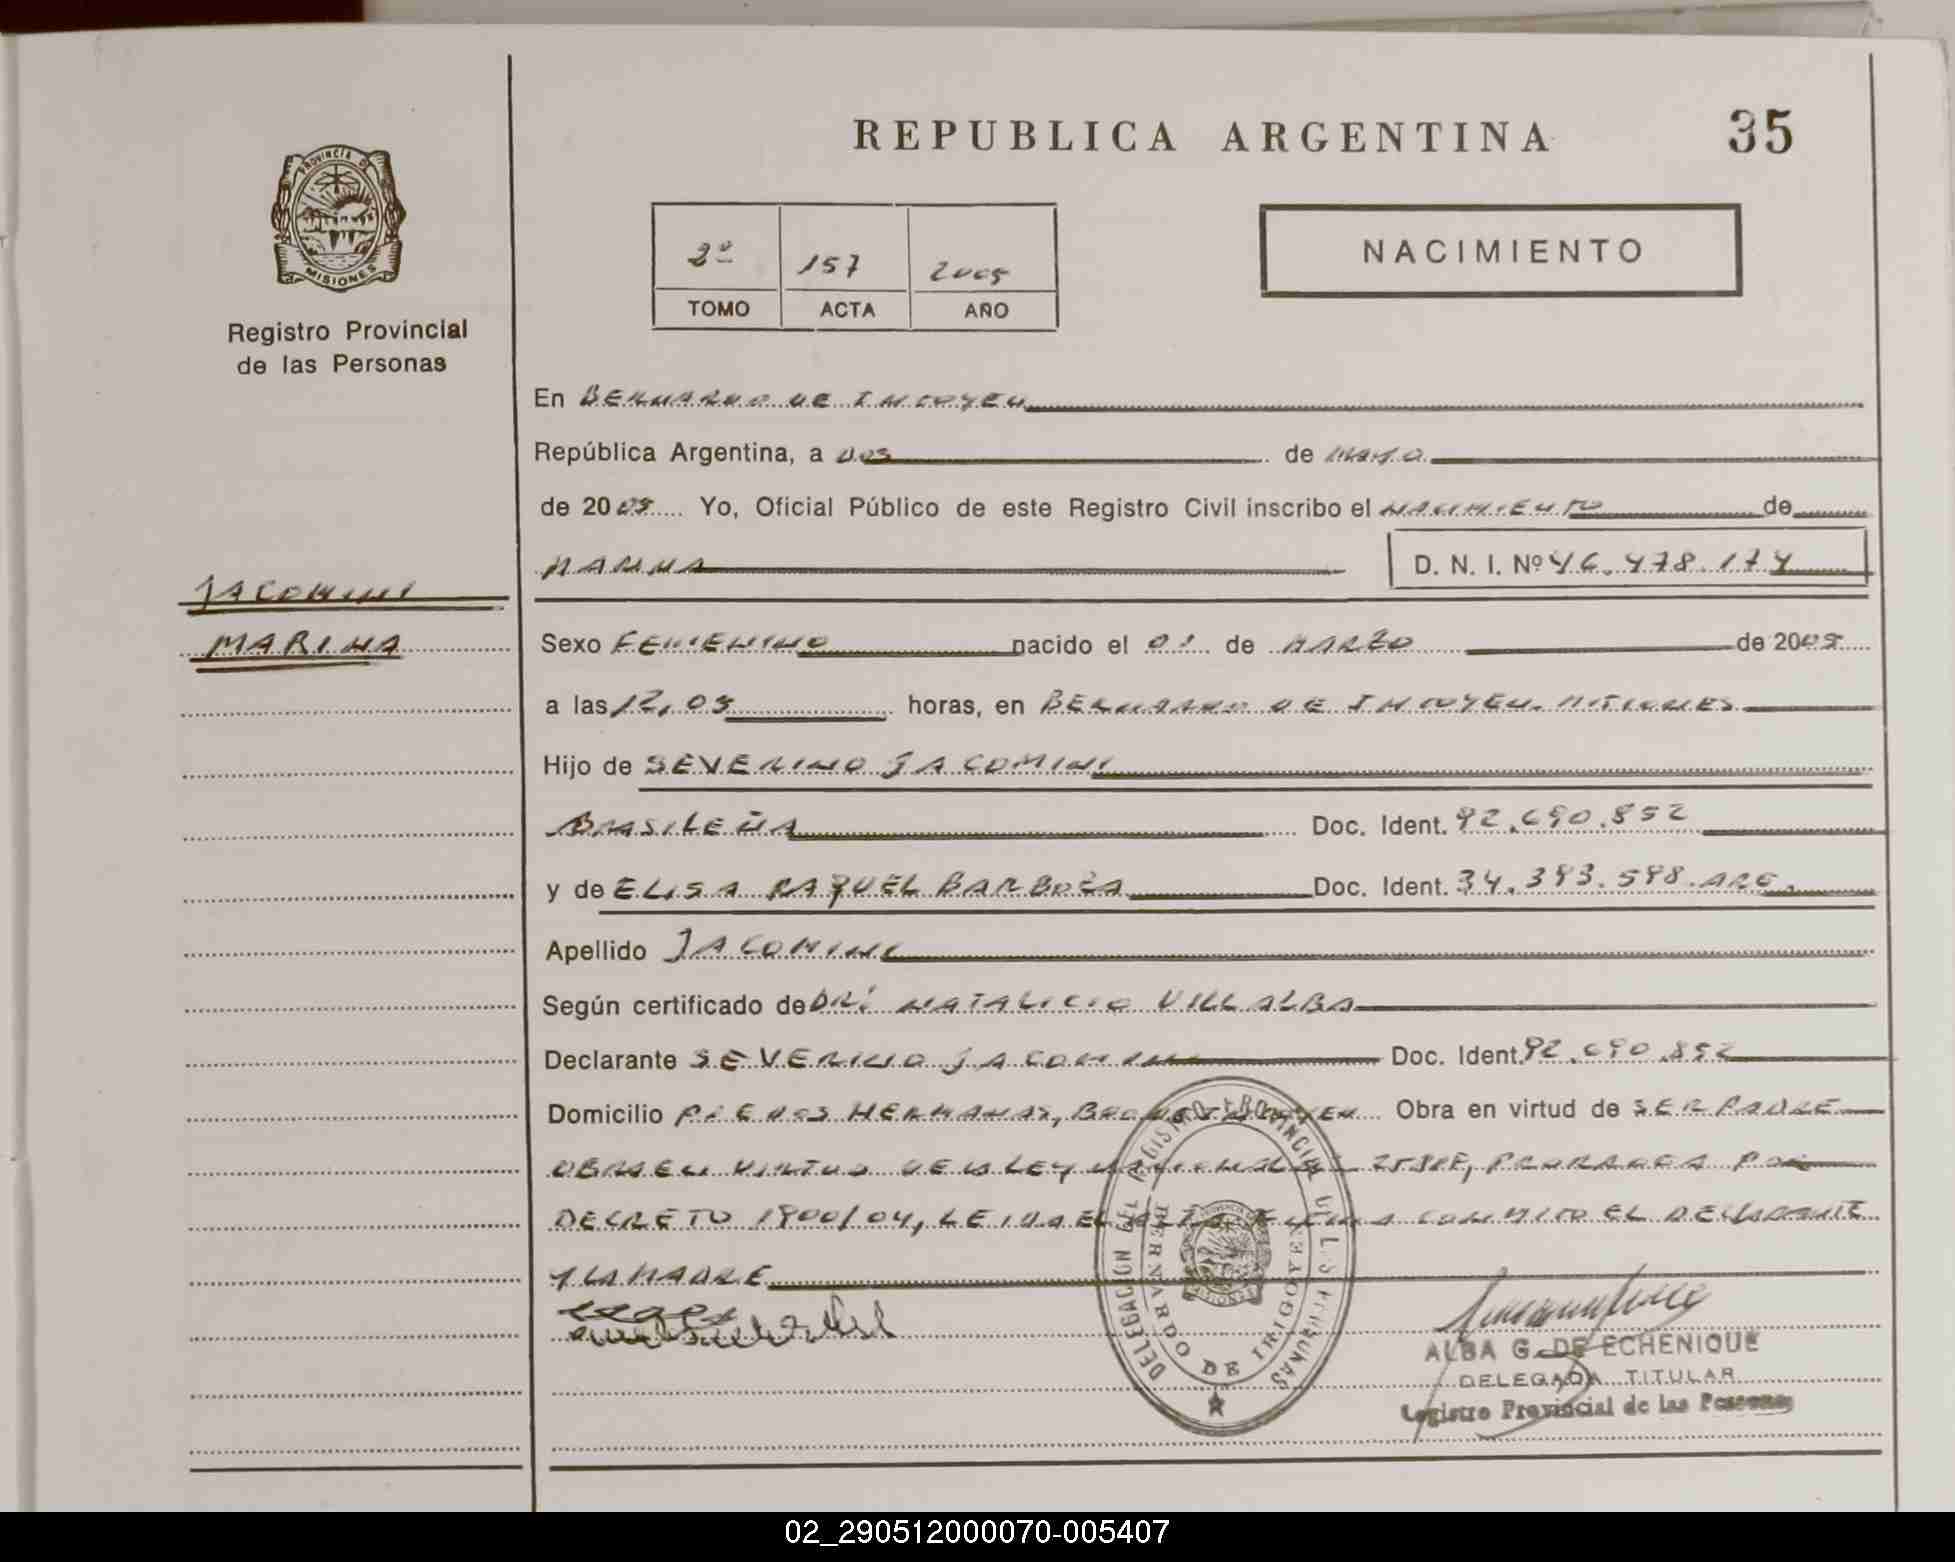 REPUBLICA ARGENTINA
35
PROVINCIA DE
MISIONES
Registro Provincial
de las Personas
2º 157 2005
TOMO ACTA AÑO
NACIMIENTO
En BERNARDO DE IRIGOYEN
República Argentina, a DOS de MAYO
de 2005 Yo, Oficial Público de este Registro Civil inscribo el NACIMIENTO de
MARINA D. N. I. Nº 46.478.174
JACOMINI
MARINA
Sexo FEMENINO nacido el 01 de MARZO de 2005
a las 12,05 horas, en BERNARDO DE IRIGOYEN. MISIONES
Hijo de SEVERINO JACOMINI
BRASILEÑA Doc. Ident. 92.690.852
y de ELISA RAQUEL BARBOZA Doc. Ident. 34.393.598.ARG.
Apellido JACOMINI
Según certificado de DR. NATALICIO VILLALBA
Declarante SEVERINO JACOMINI Doc. Ident. 92.690.852
Domicilio HERMANAS, Obra en virtud de SER PADRE
OBRA EN VIRTUD DE LA LEY NACIONAL POR
DECRETO 1900/04, LEIDA EL ACTA FIRMA CONMIGO EL DECLARANTE
Y LA MADRE
DELEGACION DEL REGISTRO PROVINCIAL DE LAS PERSONAS
BERNARDO DE IRIGOYEN
MISIONES
ALBA G. DE ECHENIQUE
DELEGADA TITULAR
Registro Provincial de las Personas
02_290512000070-005407